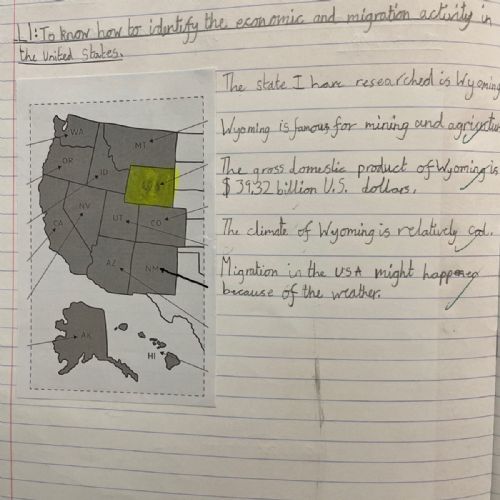 LI: To know how to identify the economic and migration activity in
the United States.
The state I have researched is Wyoming
Wyoming is famous for mining and agricultur
The gross domestic product of Wyoming is
$ 39.32 billion U.S. dollars.
The climate of Wyoming is relatively cool.
Migration in the USA might happen
because of the weather.
WA
MT
OR
ID
NV
CA
UT
CO
AZ
NM
AK
HI